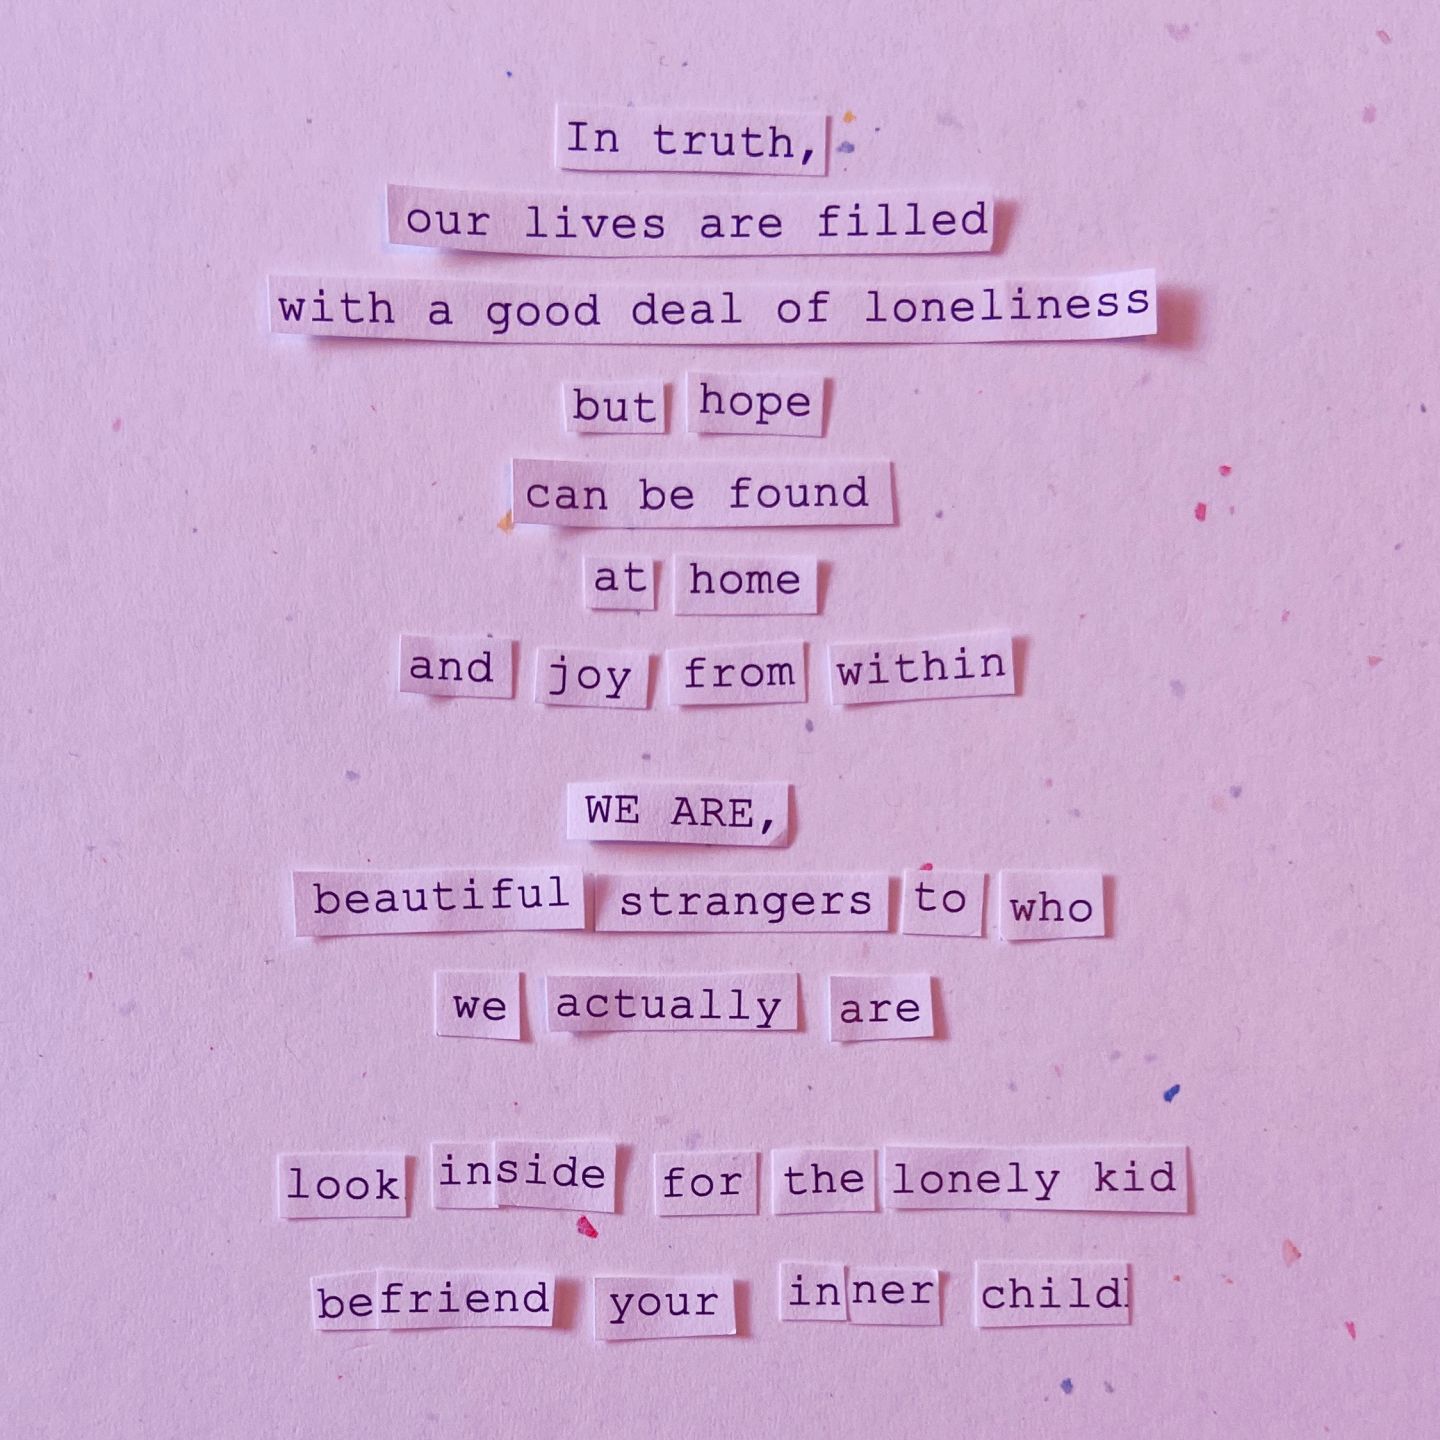 In truth,
our lives are filled
with a good deal of loneliness
but hope
can be found
at home
and joy from within
WE ARE,
beautiful strangers to who
we actually are
look inside for the lonely kid
befriend your inner child